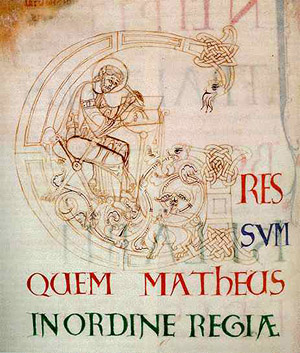 GRES
SVM
QUEM MATHEUS
IN ORDINE REGIÆ